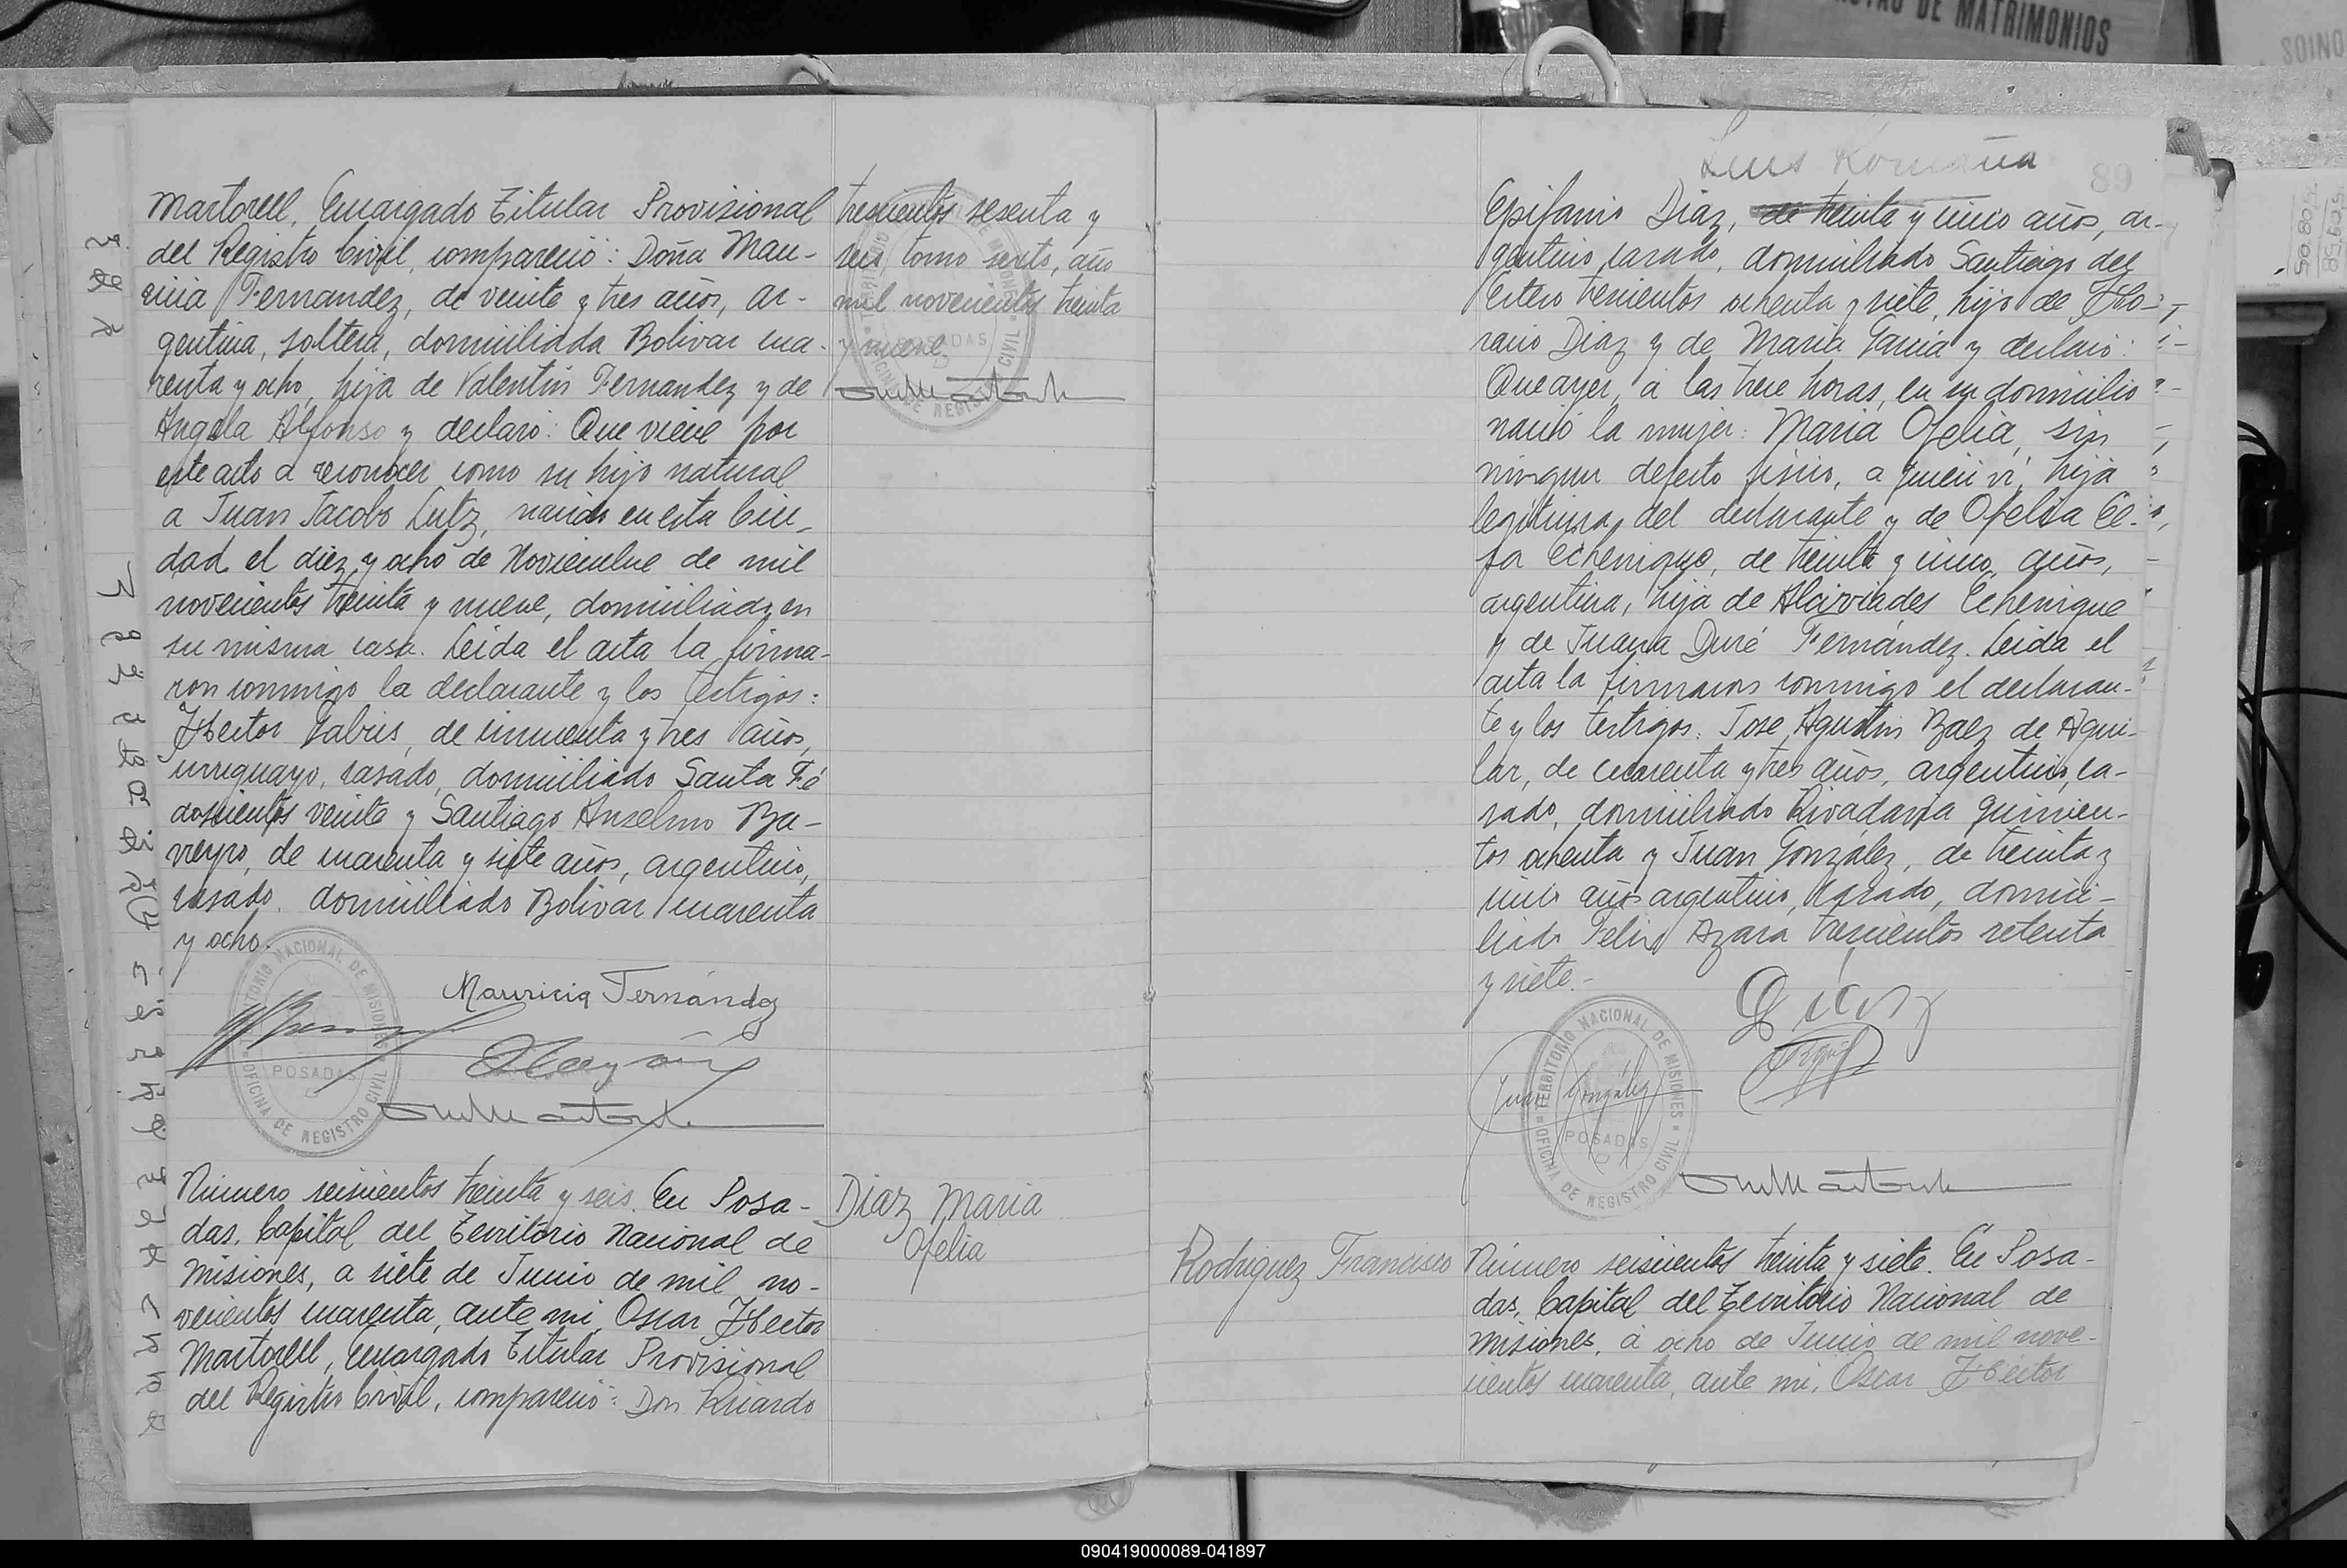 DE MATRIMONIOS
Martorell, Encargado Titular Provisional
del Registro Civil, compareció: Doña Mau-
ricia Fernandez, de veinte y tres años, ar-
gentina, soltera, domiciliada Bolivar cua-
renta y ocho, hija de Valentin Fernandez y de
Angela Alfonso y declaró: Que viene por
este acto a reconocer como su hijo natural
a Juan Jacobo Lutz, nacido en esta Ciu-
dad el diez y ocho de Noviembre de mil
novecientos treinta y nueve, domiciliado en
su misma casa. Leida el acta la firma-
ron conmigo la declarante y los testigos:
Héctor Gabris, de cincuenta y tres años,
uruguayo, casado, domiciliado Santa Fé
doscientos veinte y Santiago Anselmo Ba-
rreyro, de cuarenta y siete años, argentino,
casado, domiciliado Bolivar cuarenta
y ocho.
Mauricia Fernández
TERRITORIO NACIONAL DE MISIONES
POSADAS
OFICINA DE REGISTRO CIVIL
trescientos sesenta y
seis, tomo sexto, año
mil novecientos treinta
y nueve.
Número seiscientos treinta y seis. En Posa-
das, Capital del Territorio Nacional de
Misiones, a siete de Junio de mil no-
vecientos cuarenta, ante mi, Oscar Héctor
Martorell, Encargado Titular Provisional
del Registro Civil, compareció: Don Ricardo
Diaz Maria
Ofelia
Luis Romaña
89
Epifanio Diaz, de treinta y cinco años, ar-
gentino, casado, domiciliado Santiago del
Estero trescientos ochenta y siete, hijo de Ho-
racio Diaz y de Maria Garcia y declaró:
Que ayer, a las trece horas, en su domicilio
nació la mujer: Maria Ofelia, sin
ningun defecto fisico, a quien ví, hija
legitima del declarante y de Ofelia Ce-
fa Echenique, de treinta y cinco años,
argentina, hija de Alciviades Echenique
y de Juana Duré Fernández. Leida el
acta la firmaron conmigo el declaran-
te y los testigos: José Agustin Baez de Agui-
lar, de cuarenta y tres años, argentino, ca-
sado, domiciliado Rivadavia quinien-
tos ochenta y Juan González, de treinta y
cinco años argentino, casado, domici-
liado Felix Azara trescientos setenta
y siete.-
Diaz
Juan González
TERRITORIO NACIONAL DE MISIONES
POSADAS
OFICINA DE REGISTRO CIVIL
Rodriguez Francisco
Número seiscientos treinta y siete. En Posa-
das, Capital del Territorio Nacional de
Misiones, a ocho de Junio de mil nove-
cientos cuarenta, ante mi, Oscar Héctor
090419000089-041897